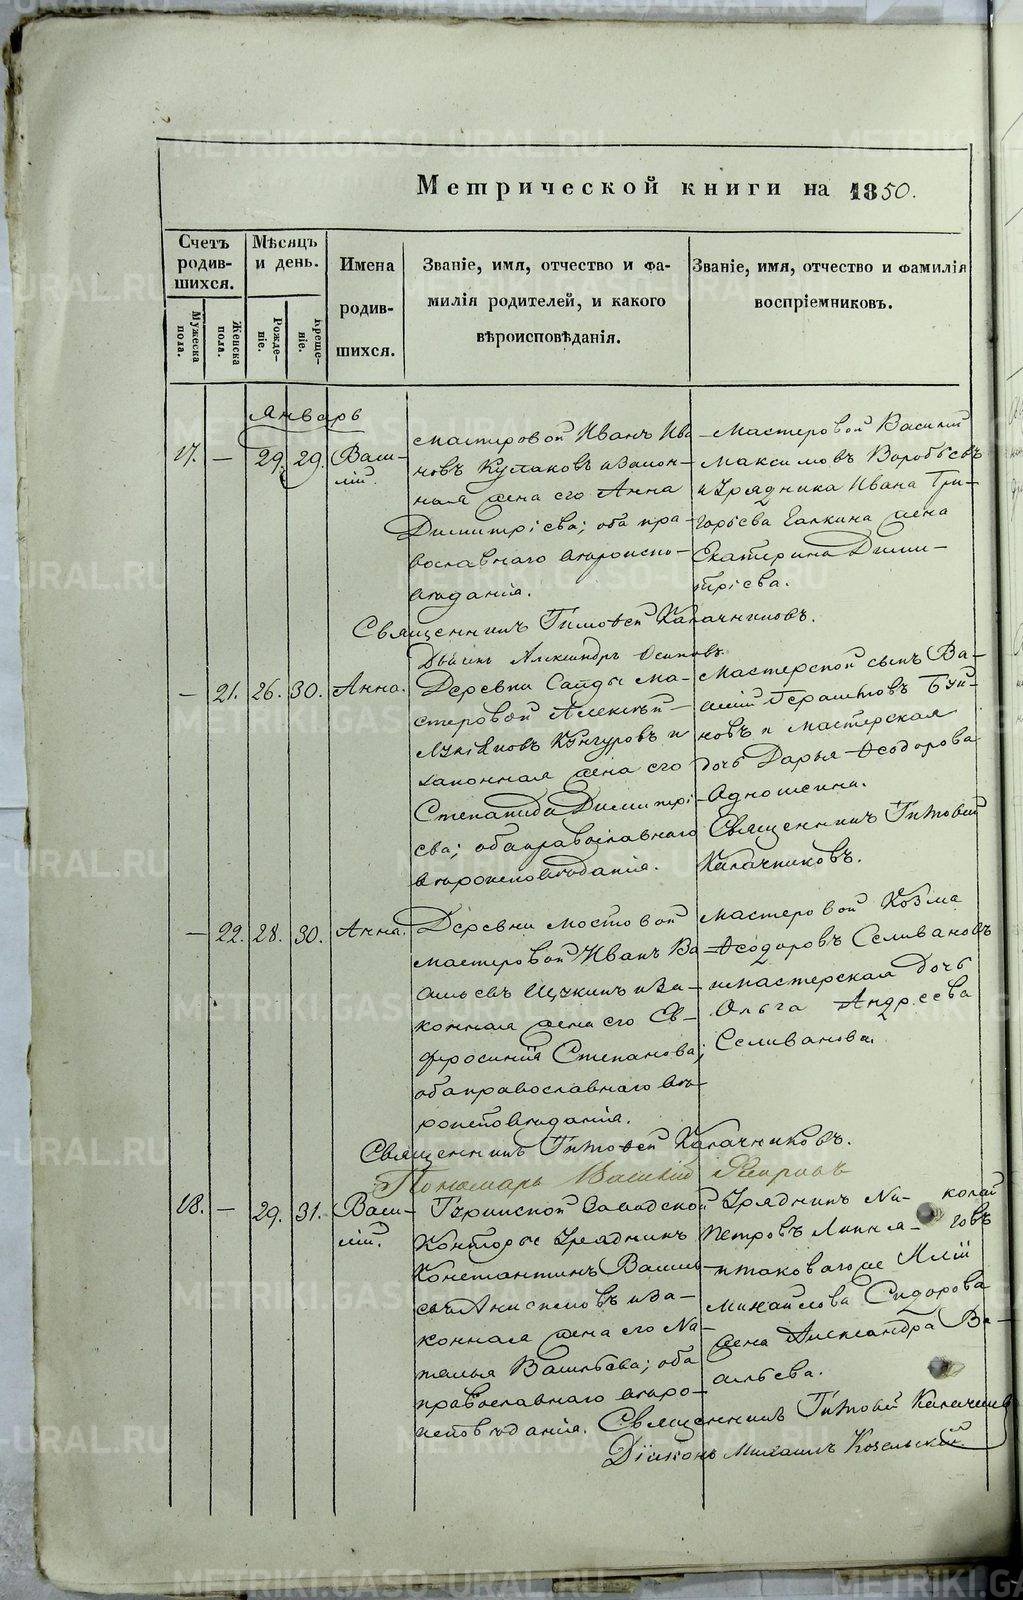 Метрической книги на 1850.
Счетъ родив-шихся.
Мужеска пола.
Женска пола.
Мѣсяцъ и день.
Рожде-ніе.
Креще-ніе.
Имена
родив-
шихся.
Званіе, имя, отчество и фа-
милія родителей, и какого
вѣроисповѣданія.
Званіе, имя, отчество и фамилія
воспріемниковъ.
Январь
17. — 29. 29. Васи-
лій.
Мастеровой Иванъ Ива-
новъ Кулаковъ и закон-
ная жена его Анна
Димитріева; оба пра-
вославнаго вѣроиспо-
вѣданія.
Мастеровой Василій
Максимовъ Воробьевъ
и Урядника Ивана Гри-
горьева Галкина жена
Екатерина Дими-
тріева.
Священникъ Тимофей Калачниковъ.
Дьячекъ Александръ Осиповъ
— 21. 26. 30. Анна.
Деревни Сайды ма-
стеровой Алексѣй
Лукіяновъ Кунгуровъ и
законная жена его
Степанида Димитрі-
ева; оба православнаго
вѣроисповѣданія.
Мастерской сынъ Ва-
силій Герасимовъ
новъ и мастерская
дочь Дарья Ѳеодорова
Священникъ Тимофей
Калачниковъ.
— 22. 28. 30. Анна.
Деревни Мостовой
мастеровой Иванъ Ва-
сильевъ и за-
конная жена его Ев-
фросинія Степанова;
оба православнаго вѣ-
роисповѣданія.
Мастеровой Козма
Ѳеодоровъ Селивановъ
и мастерская дочь
Ольга Андреева
Селиванова.
Священникъ Тимофей Калачниковъ.
Пономарь Василій
18. — 29. 31. Васи-
лій.
Заводской
Конторы Урядникъ
Константинъ Василь-
евъ Анисимовъ и за-
конная жена его На-
талья Васильева; оба
православнаго вѣро-
исповѣданія.
Урядникъ Ни- колай
Петровъ
и таковаго же Иліи
Михайлова Сидорова
жена Александра Ва-
сильева.
Священникъ Тимофей Калачников
Діаконъ Михаилъ Козельскій.
METRIKI.GASO-URAL.RU